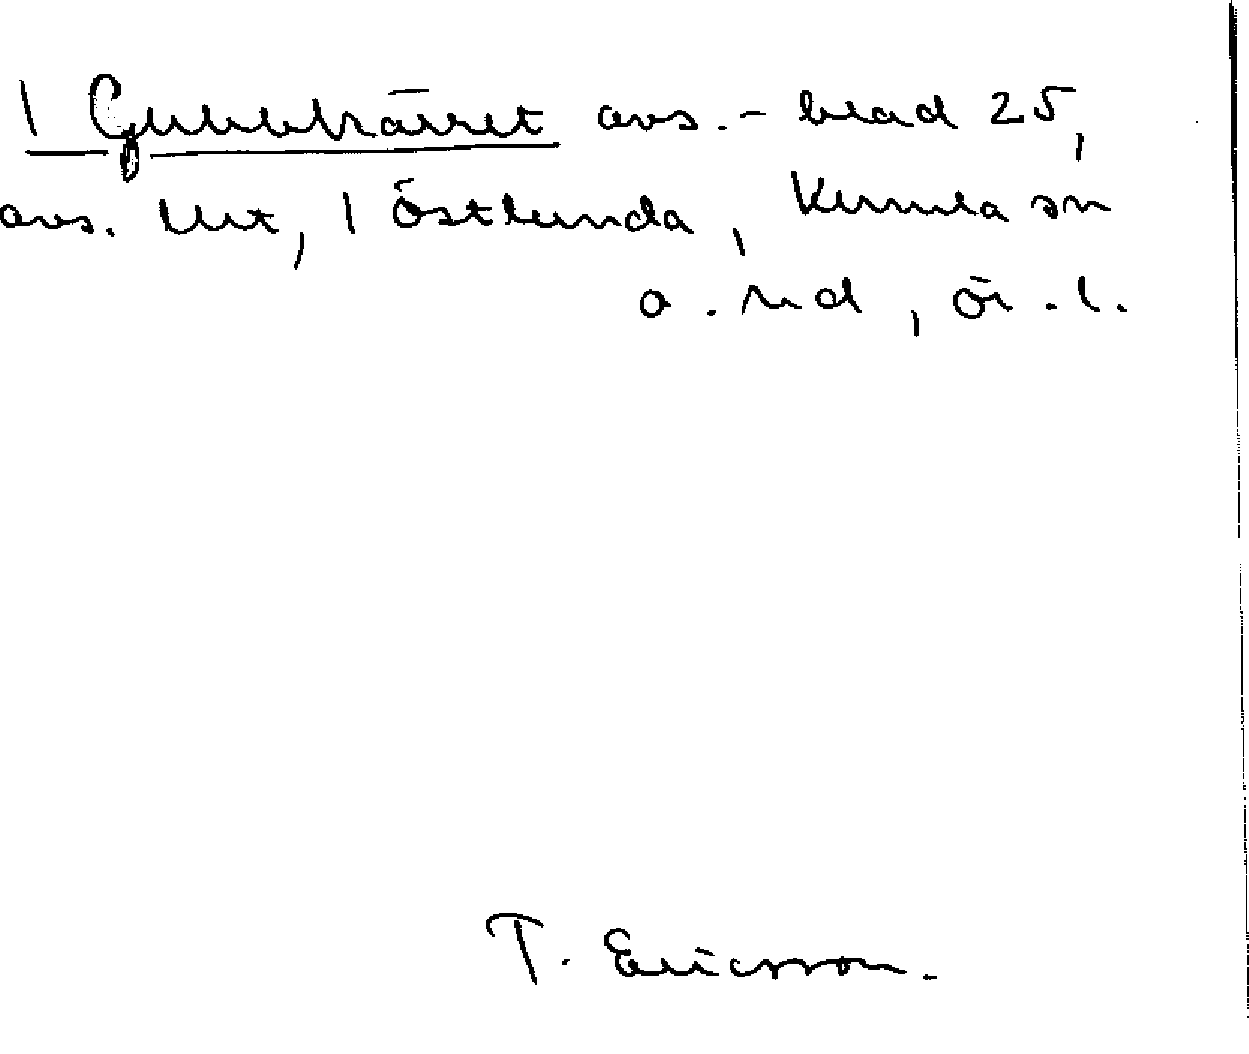 1 Gubbekärret avs. - blad 25,
avs. , 1 Östlunda, Kumla sn
o. hd, ör. l.
T. Ericsson.